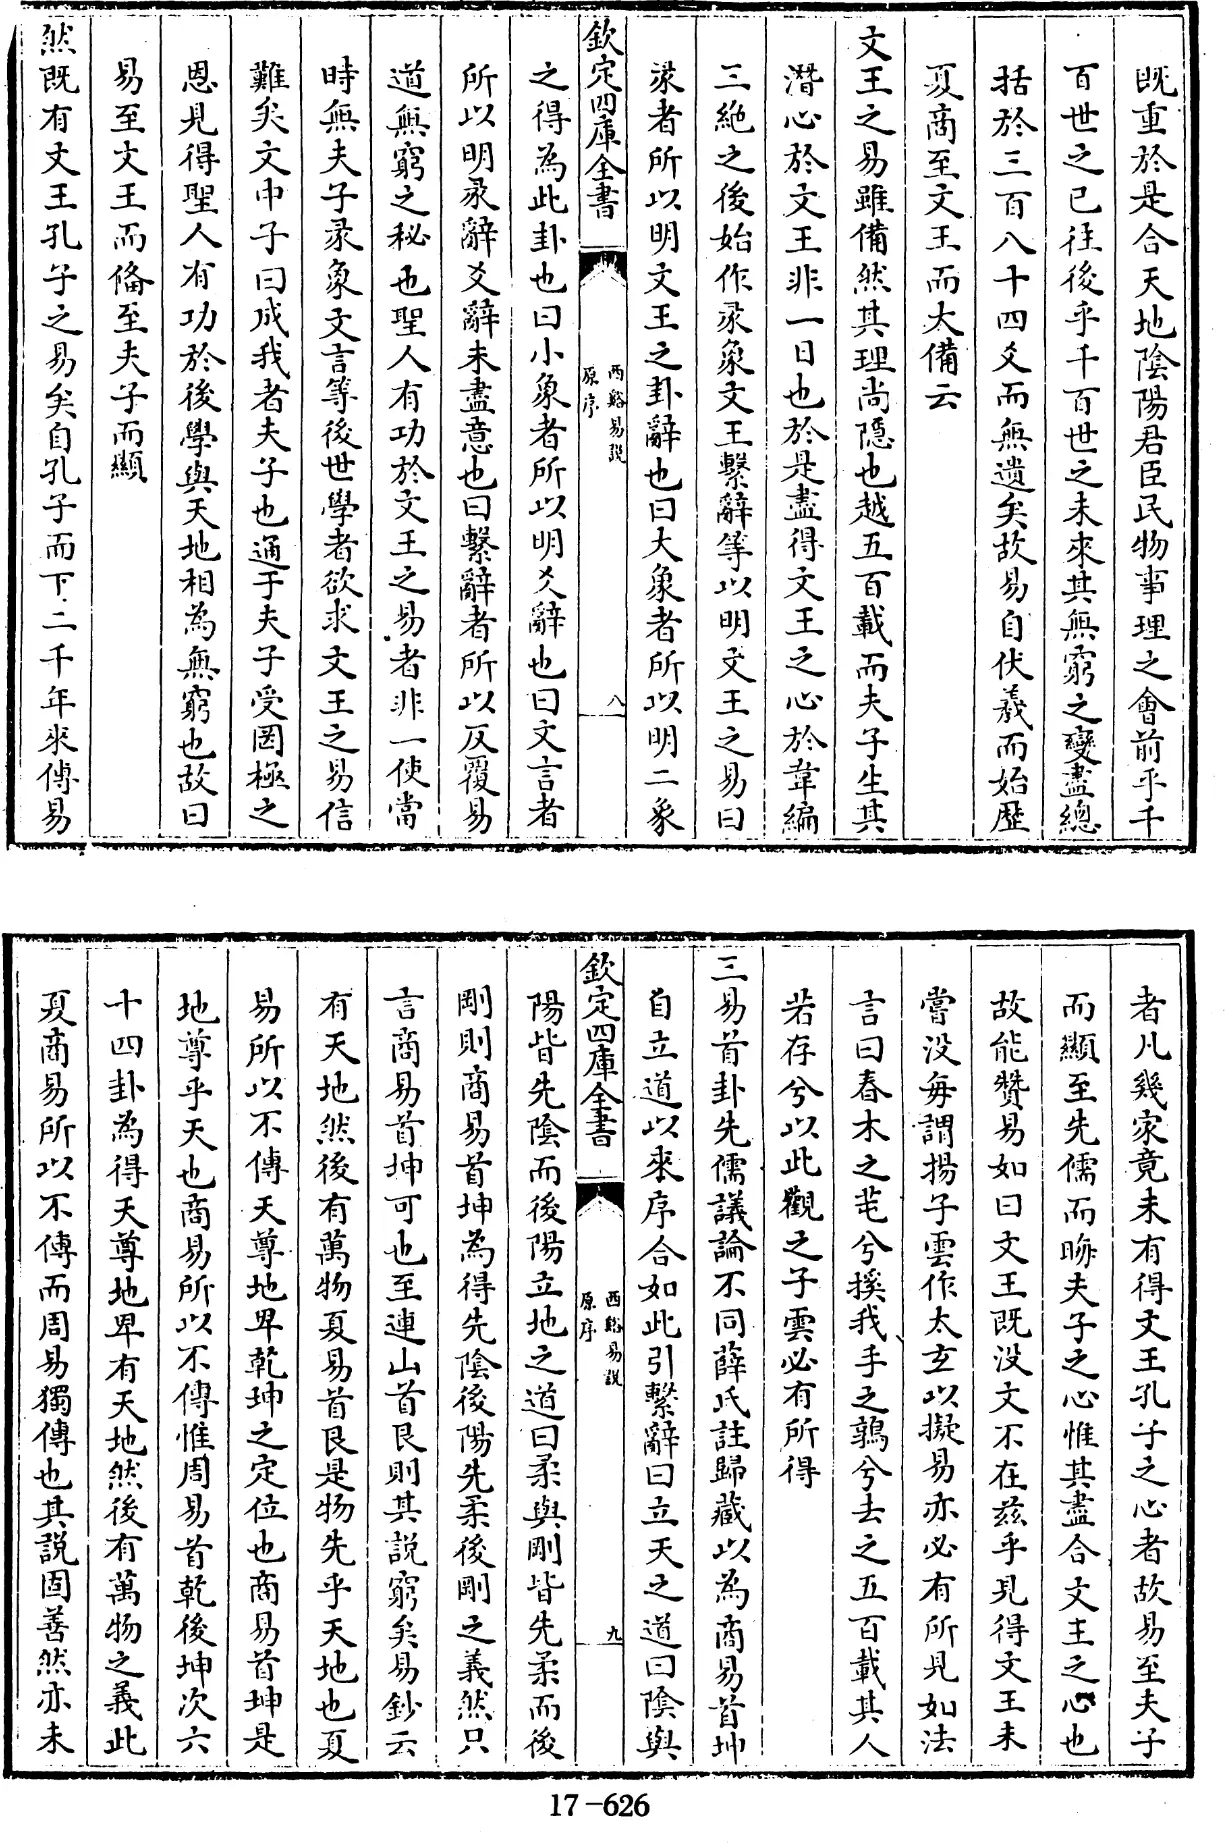 既重於是合天地陰陽君臣民物事理之會前乎千
百世之已往後乎千百世之未來其無窮之變盡總
括於三百八十四爻而無遺矣故易自伏羲而始歷
夏商至文王而大備云
文王之易雖備然其理尚隱也越五百載而夫子生其
潛心於文王非一日也於是盡得文王之心於韋編
三絶之後始作彖象文王繫辭等以明文王之易曰
彖者所以明文王之卦辭也曰大象者所以明二象
欽定四庫全書
西谿易說
原序
八
之得為此卦也曰小象者所以明爻辭也曰文言者
所以明彖辭爻辭未盡意也曰繫辭者所以反覆易
道無窮之秘也聖人有功於文王之易者非一使當
時無夫子彖象文言等後世學者欲求文王之易信
難矣文中子曰成我者夫子也通于夫子受罔極之
恩見得聖人有功於後學與天地相為無窮也故曰
易至文王而備至夫子而顯
然既有文王孔子之易矣自孔子而下二千年來傳易
者凡幾家竟未有得文王孔子之心者故易至夫子
而顯至先儒而晦夫子之心惟其盡合文王之心也
故能贊易如曰文王既没文不在兹乎見得文王未
嘗没毎謂揚子雲作太玄以擬易亦必有所見如法
言曰春木之芚兮援我手之鶉兮去之五百載其人
若存兮以此觀之子雲必有所得
三易首卦先儒議論不同薛氏註歸藏以為商易首坤
自立道以來序合如此引繫辭曰立天之道曰陰與
欽定四庫全書
西谿易說
原序
九
陽皆先陰而後陽立地之道曰柔與剛皆先柔而後
剛則商易首坤為得先陰後陽先柔後剛之義然只
言商易首坤可也至連山首艮則其說窮矣易鈔云
有天地然後有萬物夏易首艮是物先乎天地也夏
易所以不傳天尊地卑乾坤之定位也商易首坤是
地尊乎天也商易所以不傳惟周易首乾後坤次六
十四卦為得天尊地卑有天地然後有萬物之義此
夏商易所以不傳而周易獨傳也其說固善然亦未
17-626